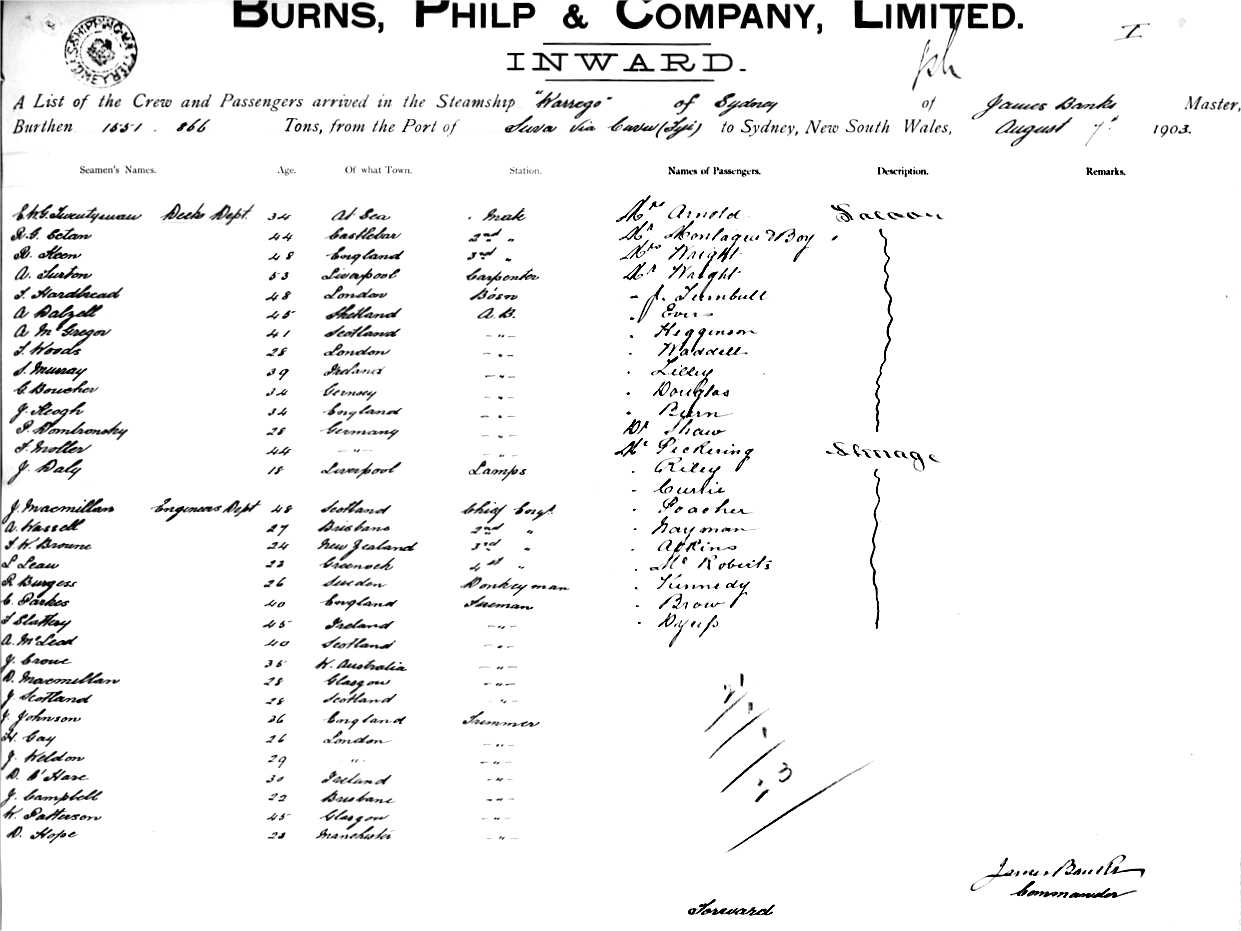 BURNS, PHILP & COMPANY, LIMITED.
INWARD.
I
A List of the Crew and Passengers arrived in the Steamship "Warrego" of Sydney of James Banks Master,
Burthen 1551. 866 Tons, from the Port of Suva via Levu (Fiji) to Sydney, New South Wales, August 7th 1903.
Seamen's Names. Age. Of what Town. Station. Names of Passengers. Description. Remarks.
E.W.G. Twentyman Decks Dept. 34 At Sea Mate Mrs Arnold Saloon
R.G. 44 Castlebar 2nd " Mr Montague & Boy
R. Keon 48 England 3rd " Mrs Wright
A. Turton 53 Liverpool Carpenter Mr Wright
T. Hardbread 48 London Bosn - J. Turnbull
A Dalzell 45 Shetland A.B. . Evers
A McGregor 41 Scotland - " - . Hegginson
T. Woods 28 London - " - . Waddell
S. Murray 39 Ireland - " - . Lilley
G. Boucher 34 Gernsey - " - . Douglas
J. Keogh 34 England - " - . Burn
P. Dombronsky 28 Germany - " - Dr Shaw
T. Moller 44 - " - - " - Mr Pickering Steerage
J. Daly 18 Liverpool Lamps . Riley
. Currie
J. Macmillan Engineers Dept 48 Scotland Chief Engr. . Poacher
A. Wassell 27 Brisbane 2nd " . Nayman
T.W. Browne 24 New Zealand 3rd " . Atkins
L Leaw 22 Greenock 4st " . Mc Roberts
R Burgess 26 Sweden Donkeyman . Kennedy
C. Parkes 40 England Fireman . Brow
T Slattery 45 Ireland - " - . Dyer
A. McLeod 40 Scotland - " -
J. Crowe 35 W. Australia - " -
D. Macmillan 28 Glasgow - " -
J Scotland 28 Scotland - " -
J. Johnson 36 England Trimmer
H. Gay 26 London - " -
J. Weldon 29 " - " -
D. O'Hare 30 Ireland - " -
J. Campbell 22 Brisbane - " -
W. Patterson 45 Glasgow - " -
D. Hope 28 Manchester - " -
James Banks
Commander
Forward